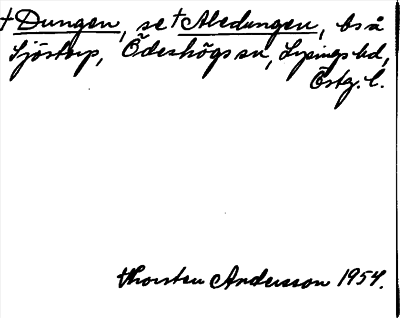 †Dungen, se †Aledungen, bs å
Sjöstorp, Ödeshögs sn, Lysings hd,
Östg. l.
Thorsten Andersson 1954.